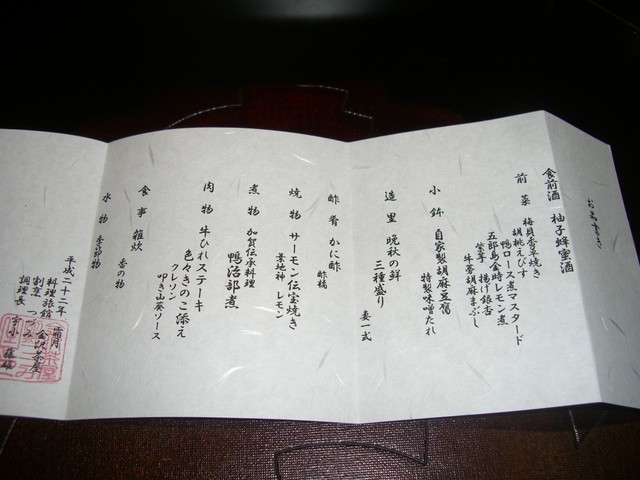 お品書き
食前酒 柚子蜂蜜酒
前菜 梅貝香草焼き
胡桃えびす
鴨ロース煮マスタード
五郎島金時レモン煮
紫芋 揚げ銀杏
牛蒡胡麻まぶし
小鉢 自家製胡麻豆腐
特製味噌たれ
造里 晩秋の鮮
三種盛り
妻一式
酢肴 かに酢
酢橘
焼物 サーモン伝宝焼き
葱地神 レモン
煮物 加賀伝承料理
鴨治部煮
肉物 牛ひれステーキ
色々きのこ添え
クレソン
叩き山葵ソース
食事 雑炊
香の物
水物 季節物
平成二十二年 霜月
料理旅館 金沢茶屋
割烹 つづみ
調理長